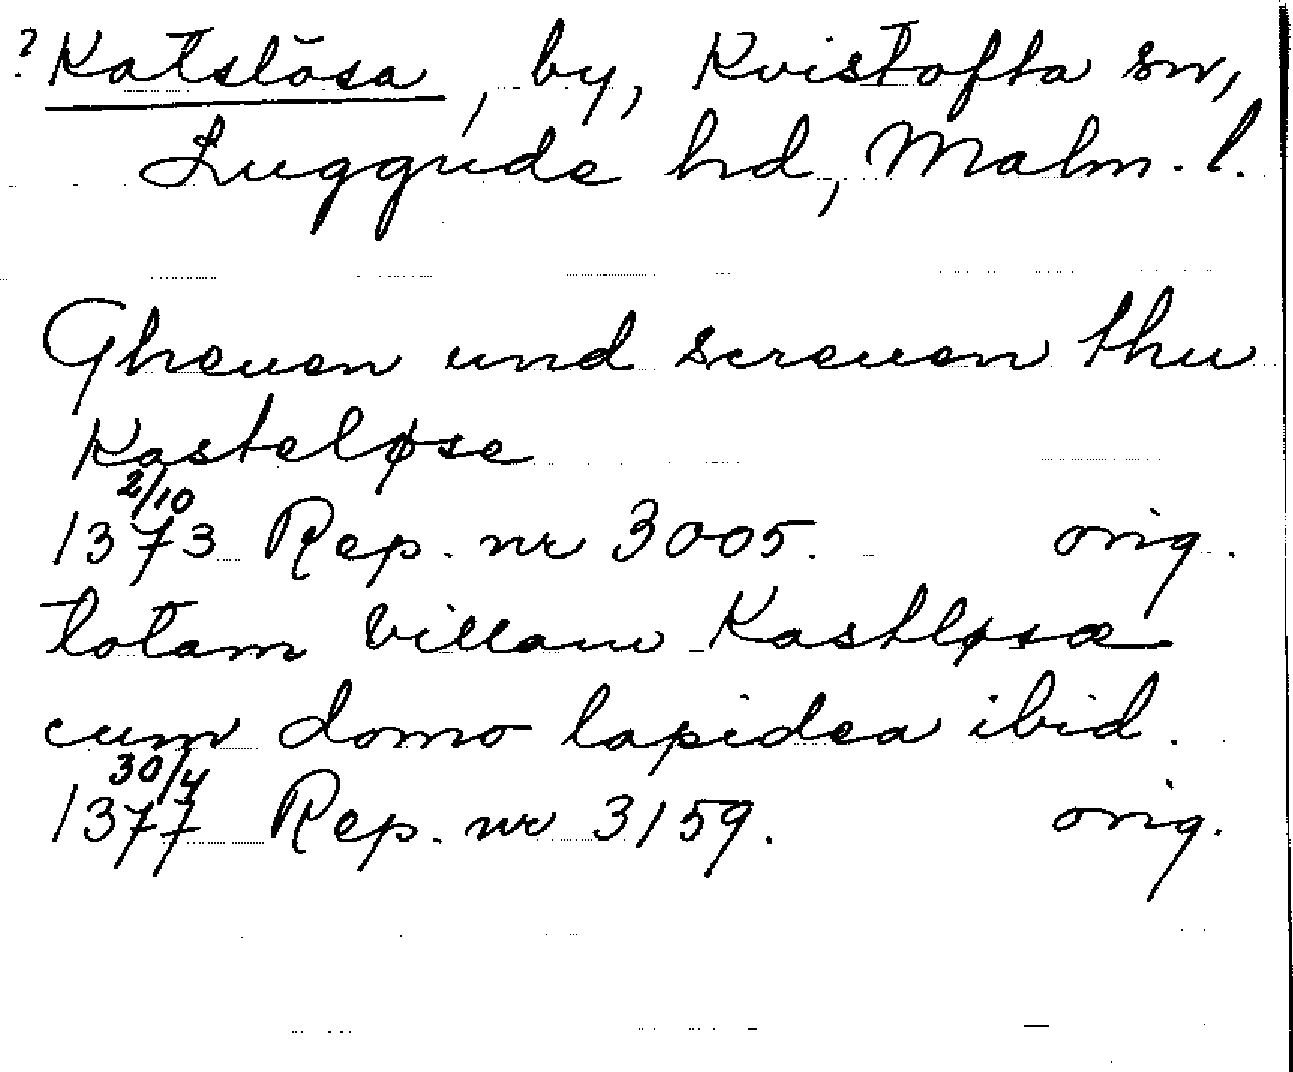 ? Katslösa, by, Kvistofta sn,
Luggude hd, Malm. l.
Gheuen und screuen thu
Kasteløse
2/10
1373 Rep. nr 3005. orig.
totam villam Kastløsæ
cum domo lapidea ibid.
30/4
1377 Rep. nr 3159. orig.